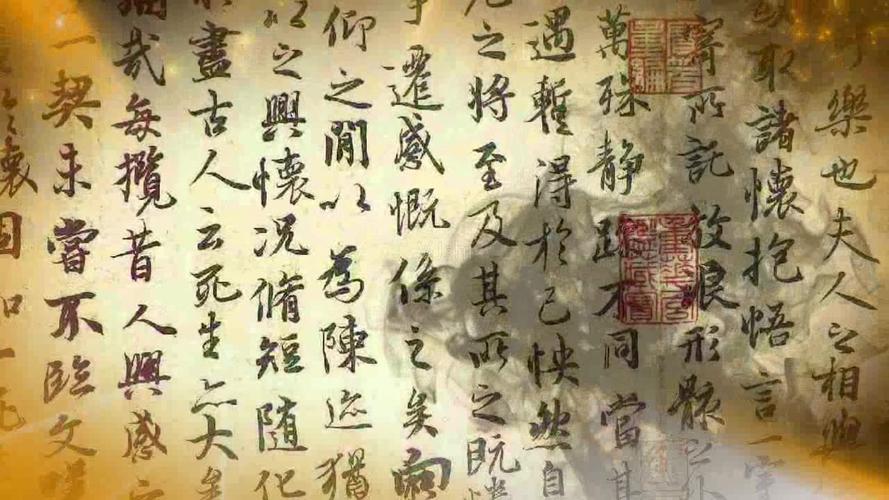 樂也夫人之相與
取諸懷抱悟言一室
寄所託放浪形骸之外
萬殊静躁不同當其
遇暫得於己怏然自
之將至及其所之既惓
遷感慨係之矣向
仰之閒以為陳迹猶
以之興懷況脩短隨化
盡古人云死生亦大矣
痛哉每攬昔人興感之
一契未嘗不臨文嗟
懷固知一死